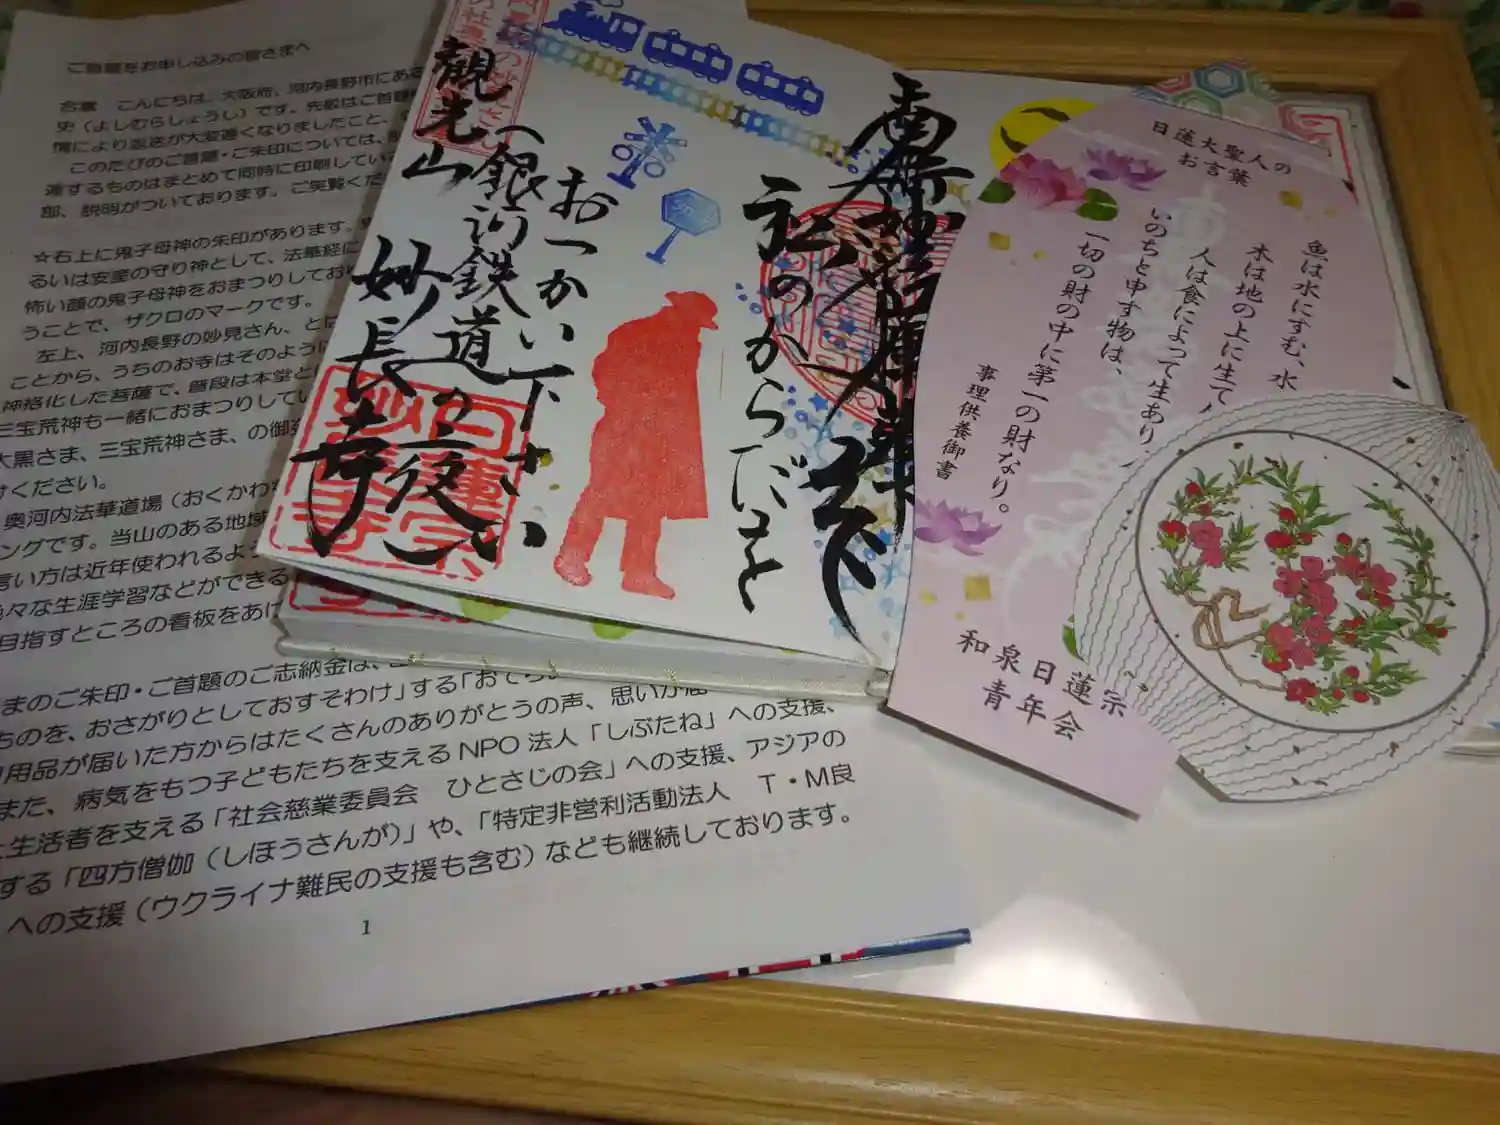 ご首題をお申し込みの皆さまへ
右臺 こんにちは。大阪府、河内長野市にある
史（よしむらしょうし）です。先般はご首題
情により返送が大変遅くなりましたこと、
このたびのご首題・ご朱印については、
連するものはまとめて同時に印刷してい
部、説明がついております。ご笑覧くだ
☆右上に鬼子母神の朱印があります。
るいは安産の守り神として、法華経に
怖い顔の鬼子母神をおまつりしており
うことで、ザクロのマークです。
左上、河内長野の妙見さん、とは
ことから、うちのお寺はそのように
神格化した菩薩で、普段は本堂と
三宝荒神も一緒におまつりしてい
大黒さま、三宝荒神さま、の御
けください。
奥河内法華道場（おくかわち
ングです。当山のある地域
言い方は近年使われるよう
々な生涯学習などができる
目指すところの看板をあげ
まのご朱印・ご首題のご志納金は、
ちのを、おさがりとしておすそわけ」する「おてら
用品が届いた方からはたくさんのありがとうの声、思いが届
また、病気をもつ子どもたちを支える NPO 法人「しぶたね」への支援、
生活者を支える「社会慈業委員会 ひとさじの会」への支援、アジアの
する「四方僧伽（しほうさんが）」や、「特定非営利活動法人 T・M良
への支援（ウクライナ難民の支援も含む）なども継続しております。
1
南無妙法蓮華経
私のからだを
おつかい下さい
〈銀河鉄道の夜〉
観光山
妙長寺
日蓮大聖人の
お言葉
魚は水にすむ、水
木は地の上に生て
人は食によって生あり
いのちと申す物は、
一切の財の中に第一の財なり。
事理供養御書
和泉日蓮宗
青年会